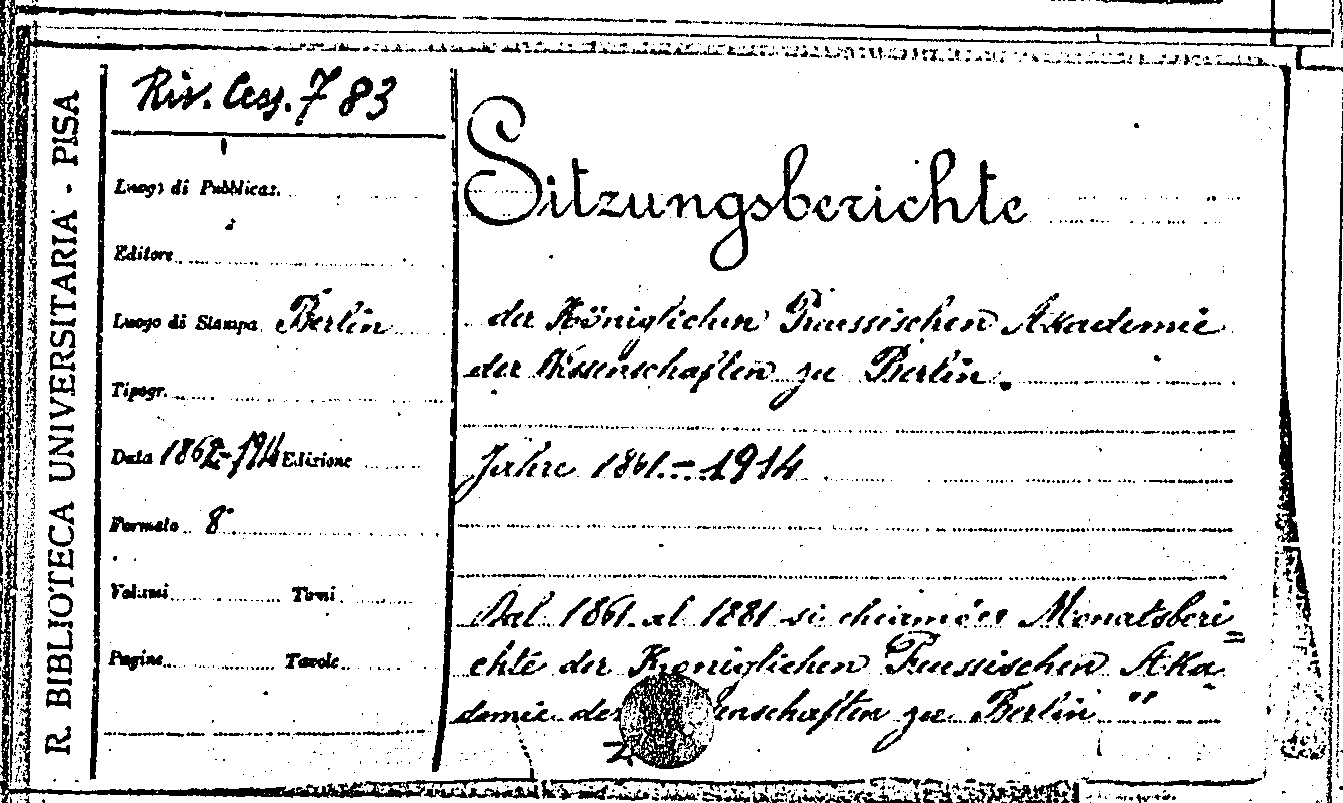 R. BIBLIOTECA UNIVERSITARIA - PISA
Riv. Cess. 783
Luogo di Pubblicaz.
Editore
Luogo di Stampa Berlin
Tipogr.
Data 1862-914 Edizione
Formato 8°
Volumi Tomi
Pagine Tavole
Sitzungsberichte
der Königlichen Preussischen Akademie
der Wissenschaften zu Berlin.
Jahre 1861.-1914
Dal 1861. al 1881 si chiamò: Monatsberi=
chte der Königlichen Preussischen Aka-
demie der enschaften zu Berlin "